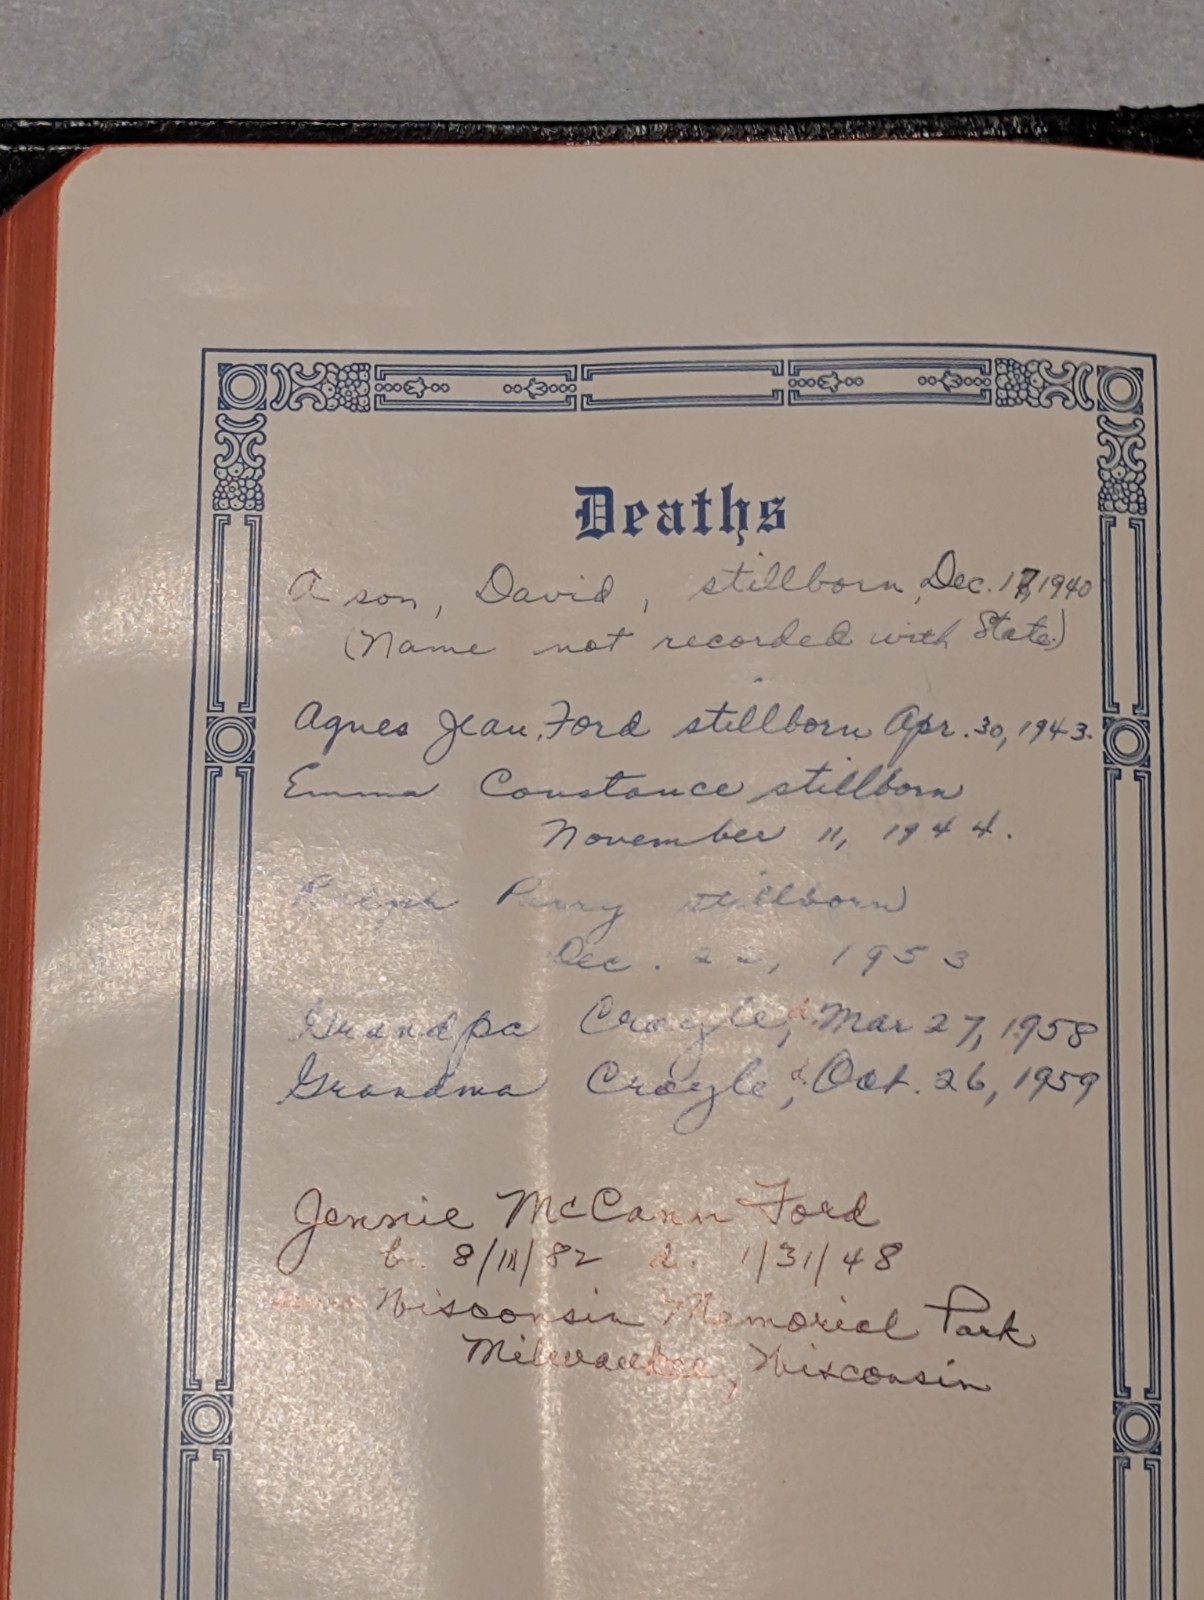 Deaths
A son, David, stillborn, Dec. 17, 1940
(Name not recorded with State)
Agnes Jean Ford stillborn Apr. 30, 1943.
Emma Constance stillborn
November 11, 1944.
Ralph Perry stillborn
Dec. 22, 1953
Grandpa Croyle, d. Mar 27, 1958
Grandma Croyle, d. Oct. 26, 1959
Jennie McCann Ford
b. 8/11/82 d. 1/31/48
Wisconsin Memorial Park
Milwaukee, Wisconsin